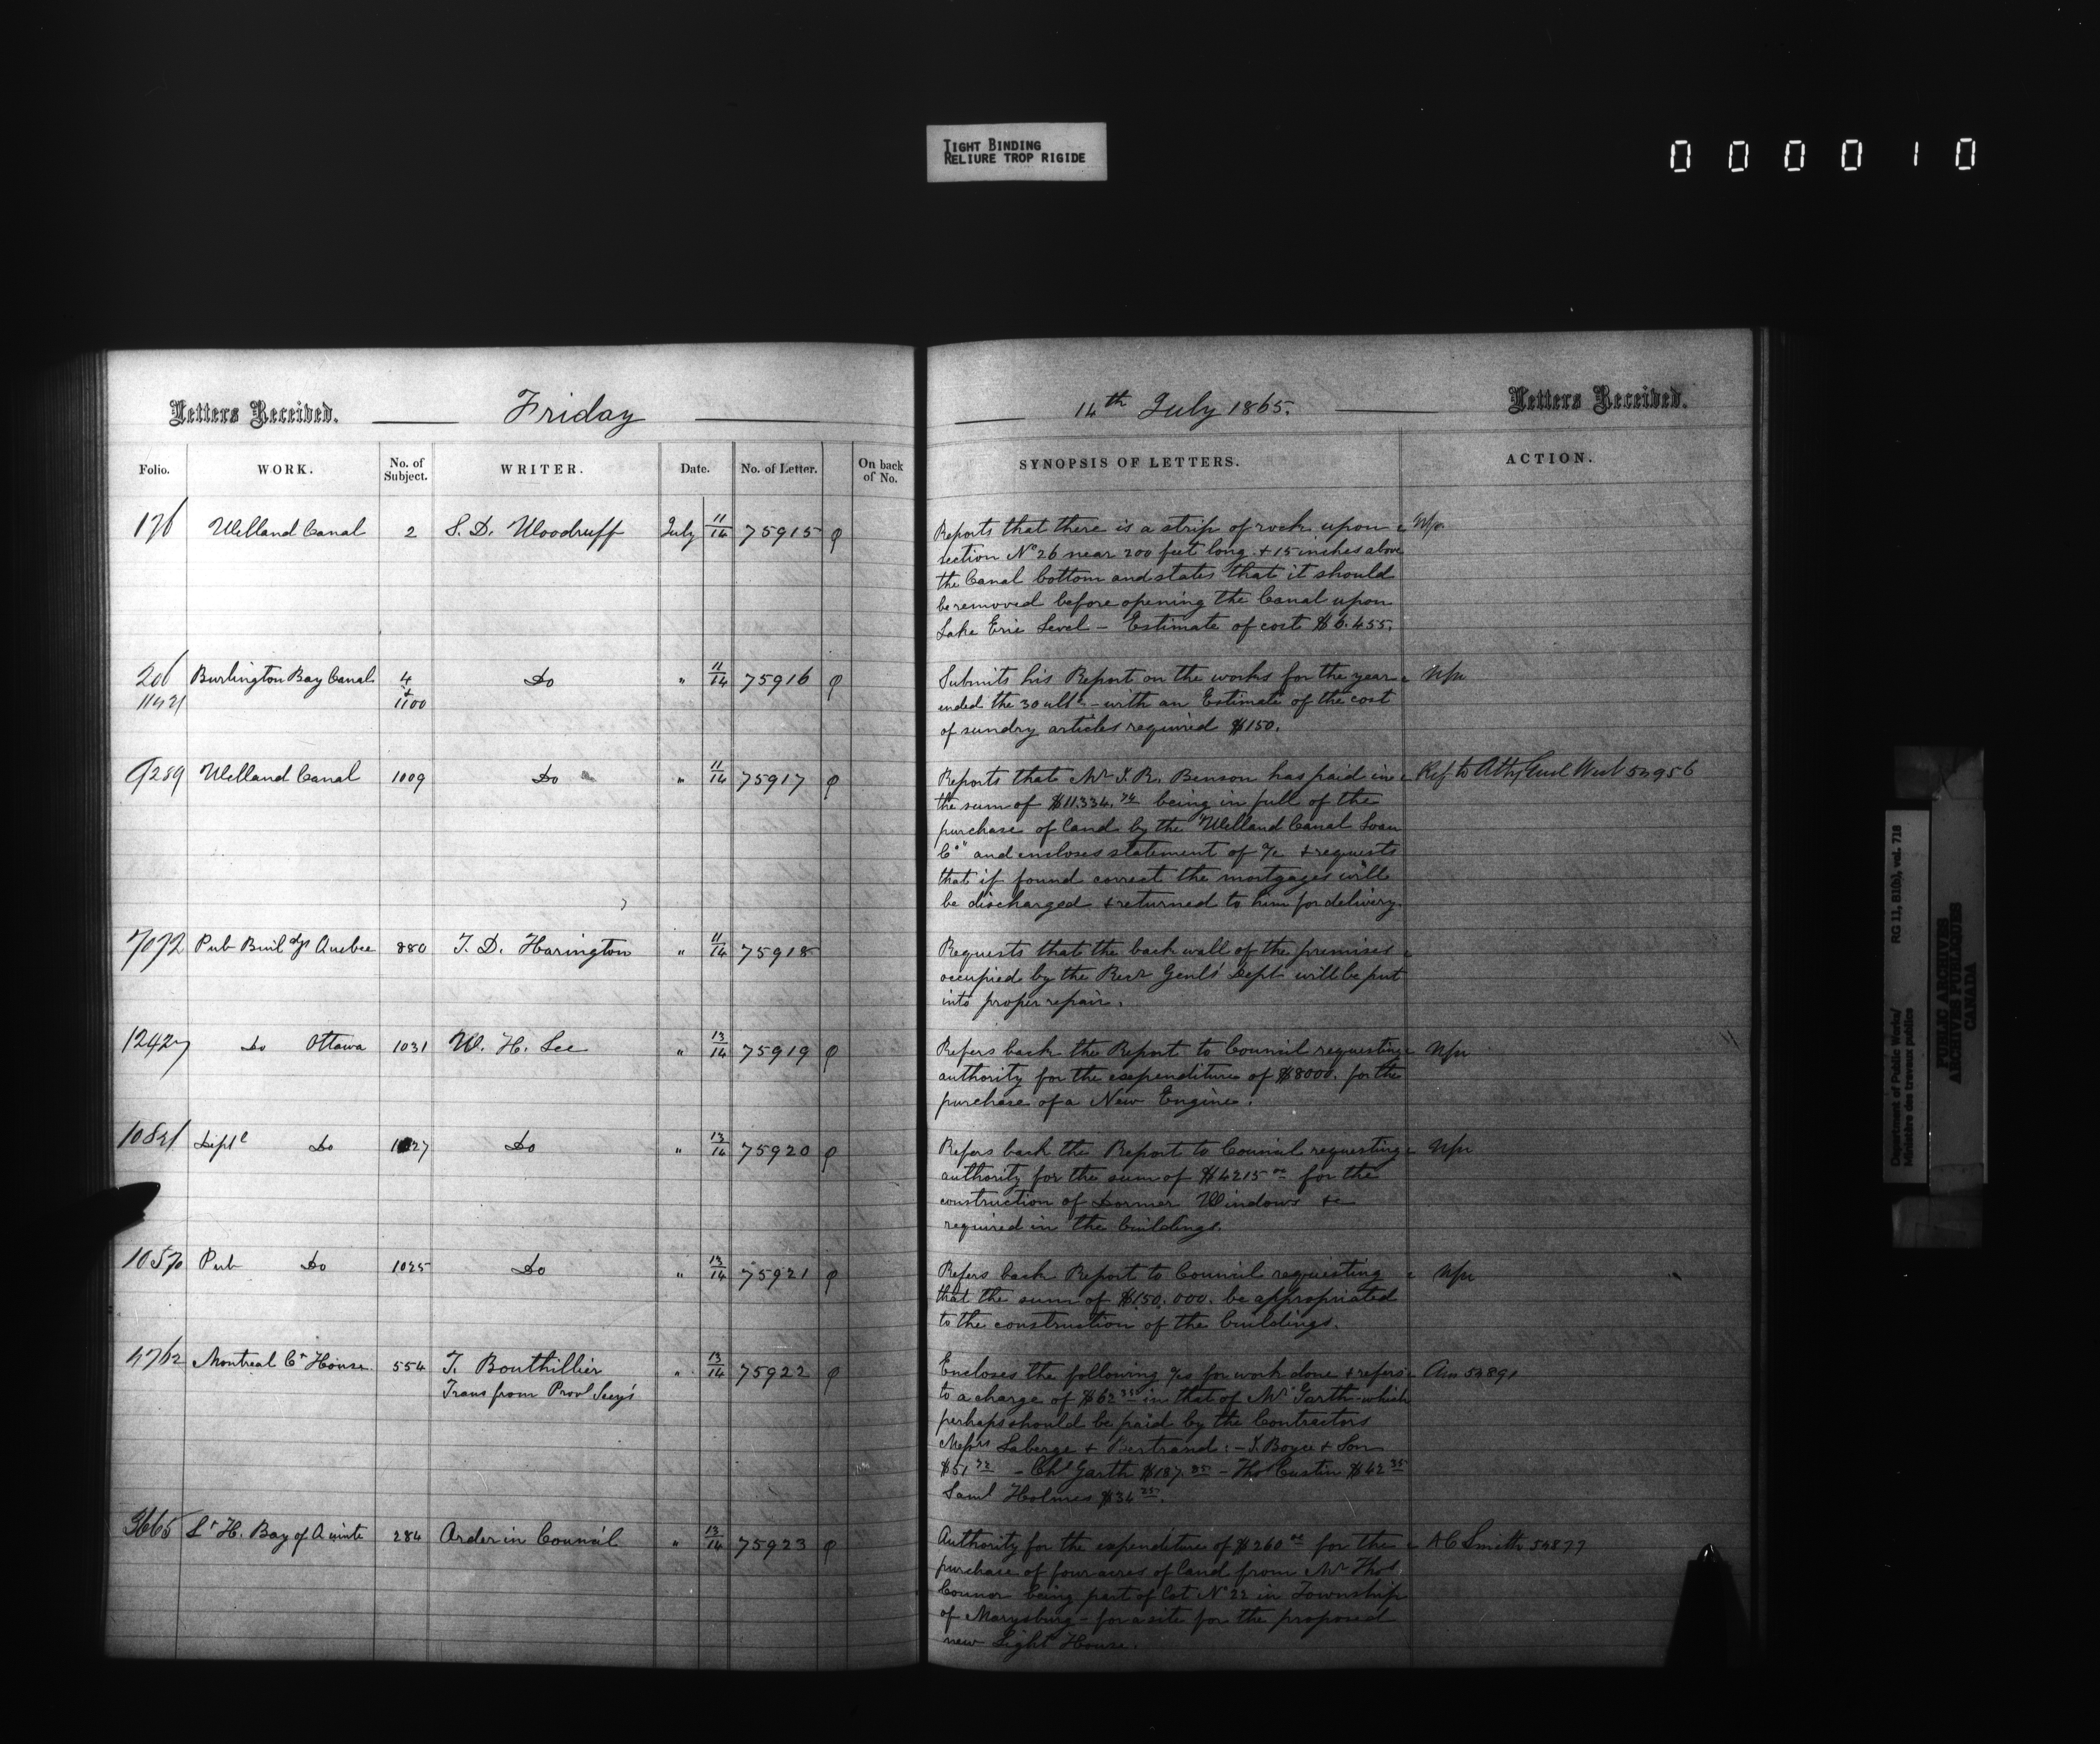 TIGHT BINDING
RELIURE TROP RIGIDE
000010
Letters Received. Friday
Folio. WORK. No. of Subject. WRITER. Date. No. of Letter. On back of No.
176 Welland Canal 2 S. D. Woodruff July 11/14 75915
206 Burlington Bay Canal 4 " 11/14 75916
+ 1100 Do
9289 Welland Canal 1009 Do " 11/14 75917
7072 Pub Buildgs Quebec 880 T. D. Harington " 11/14 75918
12427 Do Ottawa 1031 W. H. Lee " 13/14 75919
Deptl Do Do " 13/14 75920
10570 Pub Do 1025 Do " 13/14 75921
4762 Montreal Ct House 554 T. Bouthillier " 13/14 75922
Trans from Provl Secy's
3665 Lt H. Bay of Quinte 284 Order in Council " 13/14 75923
14th July 1865. Letters Received.
SYNOPSIS OF LETTERS. ACTION.
Reports that there is a strip of rock upon
section No 26 near 200 feet long + 15 inches above
the Canal bottom and states that it should
be removed before opening the Canal upon
Lake Erie Level – Estimate of cost $6.455.
Submits his Report on the works for the year
ended the 30 ulto – with an Estimate of the cost
of sundry articles required $150.
Reports that Mr J. R. Benson has paid in Ref to Atty Genl West
the sum of $11.334. being in full of the
purchase of land by the "Welland Canal Loan
Co" and encloses statement of a/c + requests
that if found correct the mortgages will
be discharged + returned to him for delivery.
Requests that the back wall of the premises
occupied by the Recr Genls' Dept will be put
into proper repair.
Refers back the Report to Council requesting
authority for the expenditure of $8000. for the
purchase of a New Engine.
Refers back the Report to Council requesting
authority for the sum of $4215 00 for the
construction of Dormer Windows &c
required in the buildings.
Refers back Report to Council requesting
that the sum of $150.000. be appropriated
to the construction of the buildings.
Encloses the following a/cs for work done + refers
to a charge of $62 in that of Mr Garth – which
perhaps should be paid by the Contractors
Messrs Laberge + Bertrand: – J. Boyce + Son
$51 – Chs Garth $187 – Thos Custin $42
Saml Holmes $34
Authority for the expenditure of $260 00 for the A C Smith 54877
purchase of four acres of land from Mr Thos
Connor being part of Lot No 22 in Township
of Marysburg – for a site for the proposed
new Light House.
Department of Public Works/ RG 11, B1(b), vol. 718
Ministère des travaux publics
PUBLIC ARCHIVES
ARCHIVES PUBLIQUES
CANADA